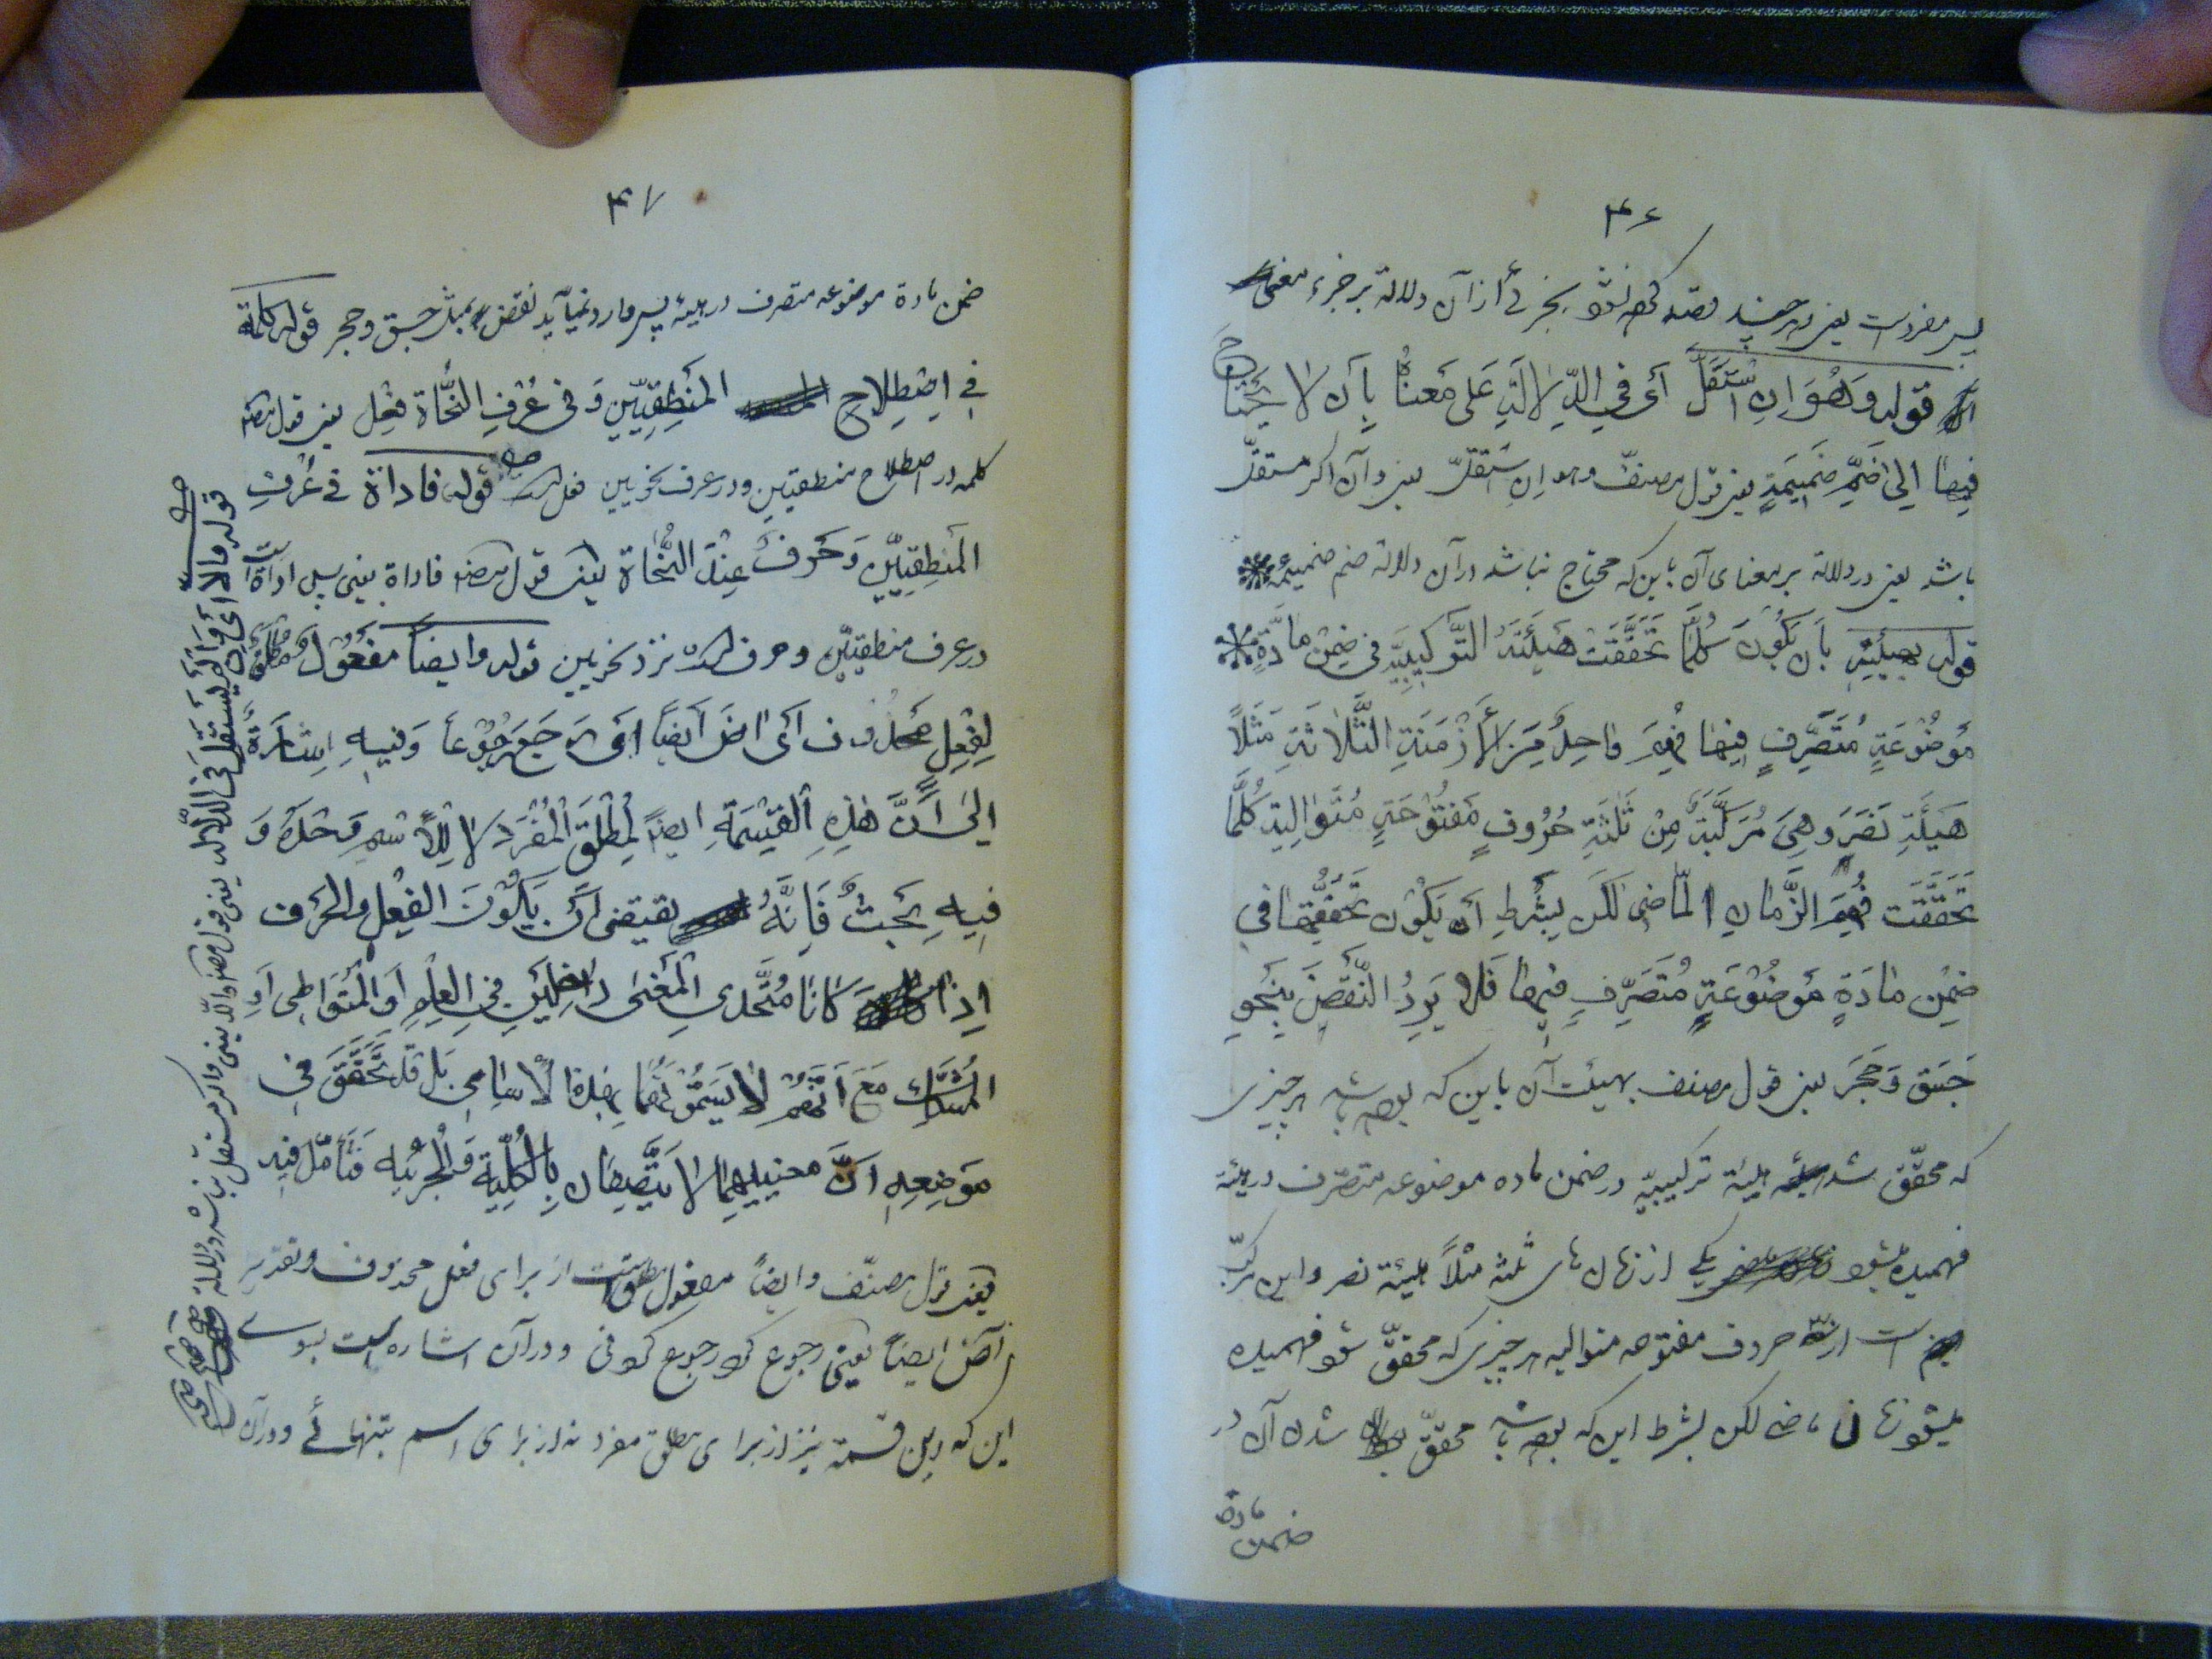 ۴۶
پس مفردست یعنی هر چند قصد کرده نشود بجزئی از آن دلالة بر جزء معنی
قوله وَهُوَ اِنِ اسْتَقَلَّ أَی فِی الدَّلالَةِ عَلی مَعناهُ بِاَن لا یَحْتاجَ
فیها اِلی ضَمِّ ضَمیمَةٍ یعنی قول مصنّف وهو اِنِ سْتَقَلّ یعنی و آن اکر مستقلّ
باشد یعنی در دلالة بر معنای آن باین که محتاج نباشد در آن دلالة ضم ضمیمه
قوله بهیئته بِاَن یَکُونَ کُلَّما تَحَقَّقَتْ هَیئَتَهُ التَّرکیبِیَّه فی ضِمْنِ مادَّةٍ
مَوضُوعَةٍ مُتَصَرِّفٍ فیها فُهِمَ واحِدٌ مِنَ الأَزْمَنَةِ الثَّلاثَةِ مَثَلاً
هَیئَةِ نَصَرَ وَهِیَ مُرَکَّبَةٌ مِنْ ثَلثَةِ حُرُوفٍ مَفتُوحَةٍ مُتَوالِیَة کُلَّما
تَحَقَّقَت فُهِمَ الزَّمانِ الماضی لکَن بِشَرطِ أَن یَکُون تَحَقُّقِها فی
ضِمْنِ مادَةٍ مَوضُوعَةٍ مُتَصَرِّفٍ فیها فَلا یَرِدُ النَّقْضَ بِنَحوِ
جَسَق وَحَجَرَ یعنی قول مصنف بهیئت آن باین که بوده باشد هر چیزی
که محقّق شد هیئة ترکیبیّه در ضمن ماده موضوعه متصرّف در هیئة
فهمیده میشود یکی از زمان های ثلثه مثلاً هیئة نصر و این مرکّب
است از سه حروف مفتوحه متوالیه هر چیزی که محقّق شود فهمیده
میشود زمان ماضی لکن بشرط این که بوده باشد محقّق شدن آن در
ضمن مادة
۴۷
ضمن مادة موضوعه متصرف در هیئة پس وارد نمیآید نقض بمثل جسق و حجر قوله کلمة
فی اِصْطِلاحِ المَنْطِقِیّینِ وَ فی عُرْفِ النُّحاة فِعْل یعنی قول مصنف
کلمه در اصطلاح منطقیین و در عرف نحویین فعل است قوله فاداة فی عُرْفِ
المَنْطِقِیّینِ وَحَرْفٌ عِنْدَ النُّحاة یعنی قول مصنف فاداة یعنی پس اداة است
در عرف منطقیّین و حرف است نزد نحویین قوله وایضاً مَفعُول مُطْلَق
لِفِعْلٍ مَحذُوف اَی اضَ اَیضاً اَی رَجَعَ رُجُوعاً وَفیهِ اِشارَة
اِلی اَنَّ هذِهِ القِسْمَةِ ایضاً لِمُطْلَقِ الْمُفْرَد لا لِلاِسْمِ وَحْدَهُ وَ
فیهِ بَحثٌ فَاِنَّهُ یقتضی اَن یَکُونَ الفِعْل والحَرف
اِذا کانا مُتَّحِدیِ الْمَعْنی داخِلَینِ فی العَلَمِ اَوِ الْمُتَواطِی اَوِ
المُشَکِّکِ مَعَ اَنَّهُم لا یُسَمُّونَهُما بِهذه الاسامی بَل قَد تَحَقَّقَ فی
مَوضِعِهِ اَنَّ معنییهما لا یَتَّصِفان بِالکُلّیَّة وَالْجُزئیَّه فَتَاَمَّل فیه
یعنی قول مصنّف وایضاً مفعول مطلق است از برای فعل محذوف و تقدیر
آض ایضاً یعنی رجوع کرد رجوع کردنی و در آن اشاره است بسوی
این که این قسمة نیز از برای مطلق مفرد نه از برای اسم بتنهائی و در آن
قوله والا ای وَاِن لَم یَستَقِلَّ فی الدّلالة یعنی قول مصنف والّا یعنی و اکر مستقل نباشد در دلالة